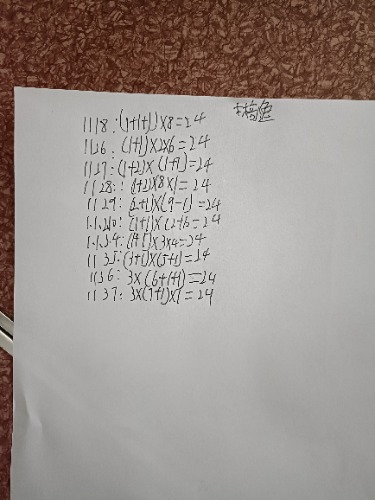 1118:(1+1+1)×8=24
1126:(1+1)×2×6=24
1127:(1+2)×(1+7)=24
1128:(1+2)×8×1=24
1129:(2+1)×(9-1)=24
1.1.2.10:(1+1)×(2+10=24
1.1.3.4:(1+1)×3×4=24
1135:(3+1)×(5+1)=24
1136:3×(6+1+1)=24
1137:3×(7+1)×1=24